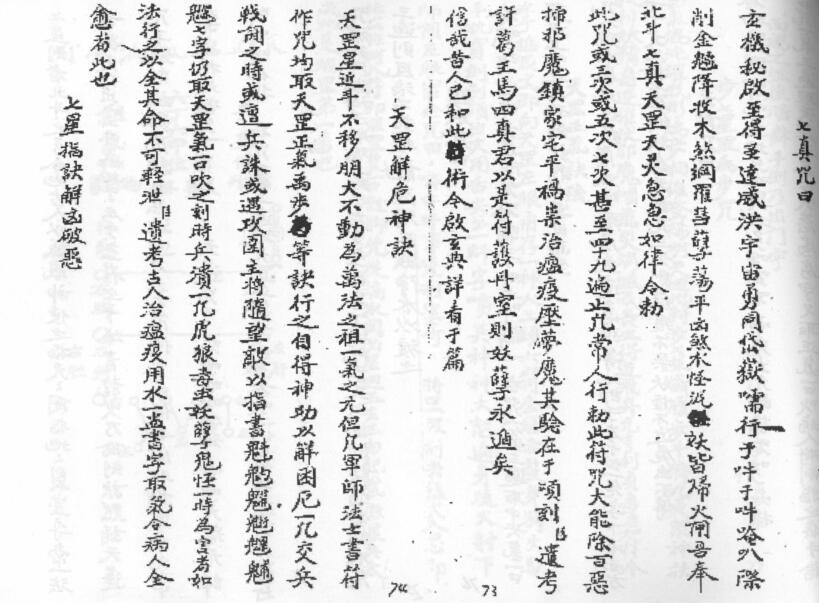 七真咒曰
玄機秘啟至得至達威洪宇宙勇同岱嶽嚅行于吽于吽唵叭㗭
削金魑降收木煞綱羅彗孽蕩平凶煞水怪泥妖皆歸火開吾奉
北斗七真天罡天灵急急如律令勅
此咒或三次或五次七次甚至四十九遍止凡常人行勅此符咒大能除百惡
掃邪魔鎮家宅平禍祟治瘟疫壓夢魔其驗在于頃刻遺考
許葛王馬四真君以是符護丹室則妖孽永遁矣
信哉昔人已和此術今啟玄典詳看于篇
73
天罡解危神訣
天罡星近斗不移朋大不動為萬法之祖一氣之元但凡軍師法士書符
作咒均取天罡正氣禹步等訣行之自得神功以解困厄一凡交兵
戰鬪之時或遭兵誅或遇攻圍主將隨望敵以指書魁䰢魓
七字仍取天罡氣一口吹之刻時兵潰一凡虎狼毒虫妖孽鬼怪一時為害者如
法行之以全其命不可輕泄遺考古人治瘟疫用水一盞書字取氣令病人全
愈者此也
七星指訣解凶破惡
74